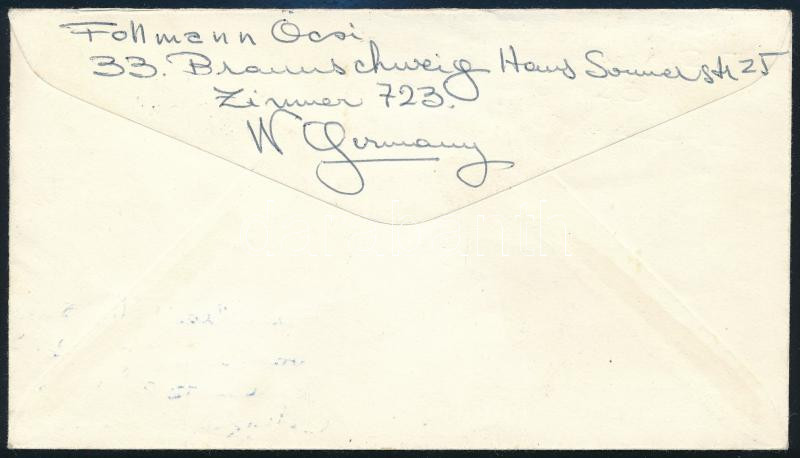 Follmann Öcsi
33. Braunschweig Hans Sommerstr 25
Zimmer 723.
W Germany